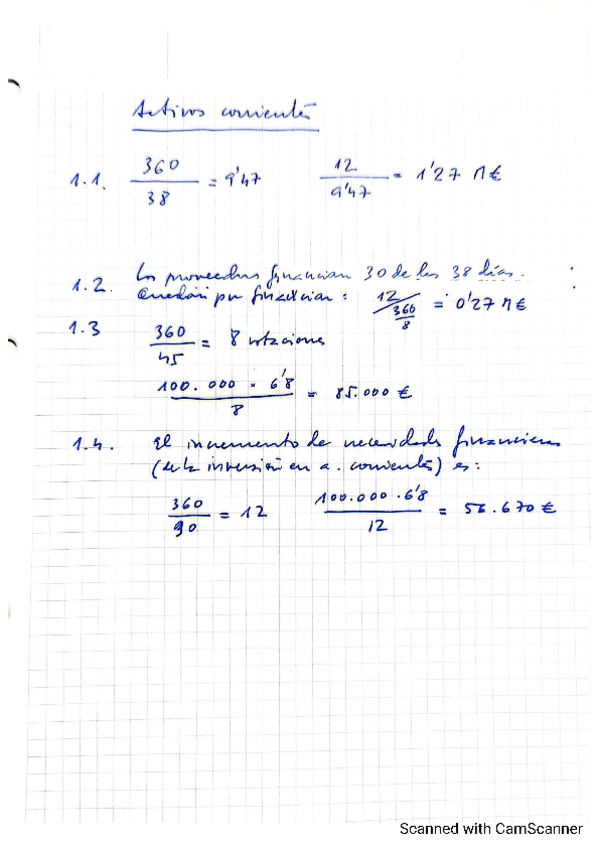 Activos corrientes
1.1. 360/38 = 9'47 12/9'47 = 1'27 M€
1.2. Los proveedores financian 30 de los 38 días.
Quedan por financiar: 12/(360/8) = 0'27 M€
1.3 360/45 = 8 rotaciones
(100.000 × 6'8)/8 = 85.000 €
1.4. El incremento de necesidades financieras
(de la inversión en a. corrientes) es:
360/90 = 12 (100.000 · 6'8)/12 = 56.670 €
Scanned with CamScanner